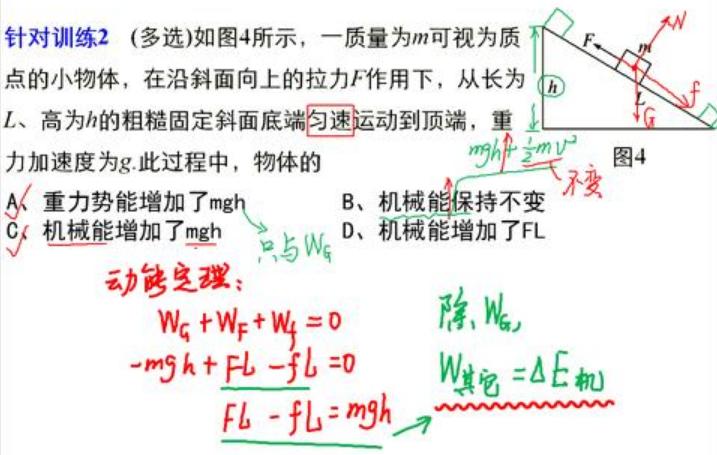 针对训练2 (多选)如图4所示，一质量为m可视为质
点的小物体，在沿斜面向上的拉力F作用下，从长为
L、高为h的粗糙固定斜面底端匀速运动到顶端，重
力加速度为g.此过程中，物体的
A、重力势能增加了mgh B、机械能保持不变
C、机械能增加了mgh D、机械能增加了FL
F m N
h L f
G
图4
mgh + ½mv²
不变
只与WG
动能定理:
WG + WF + Wf = 0
-mgh + FL - fL = 0
FL - fL = mgh
除 WG,
W其它 = ΔE机